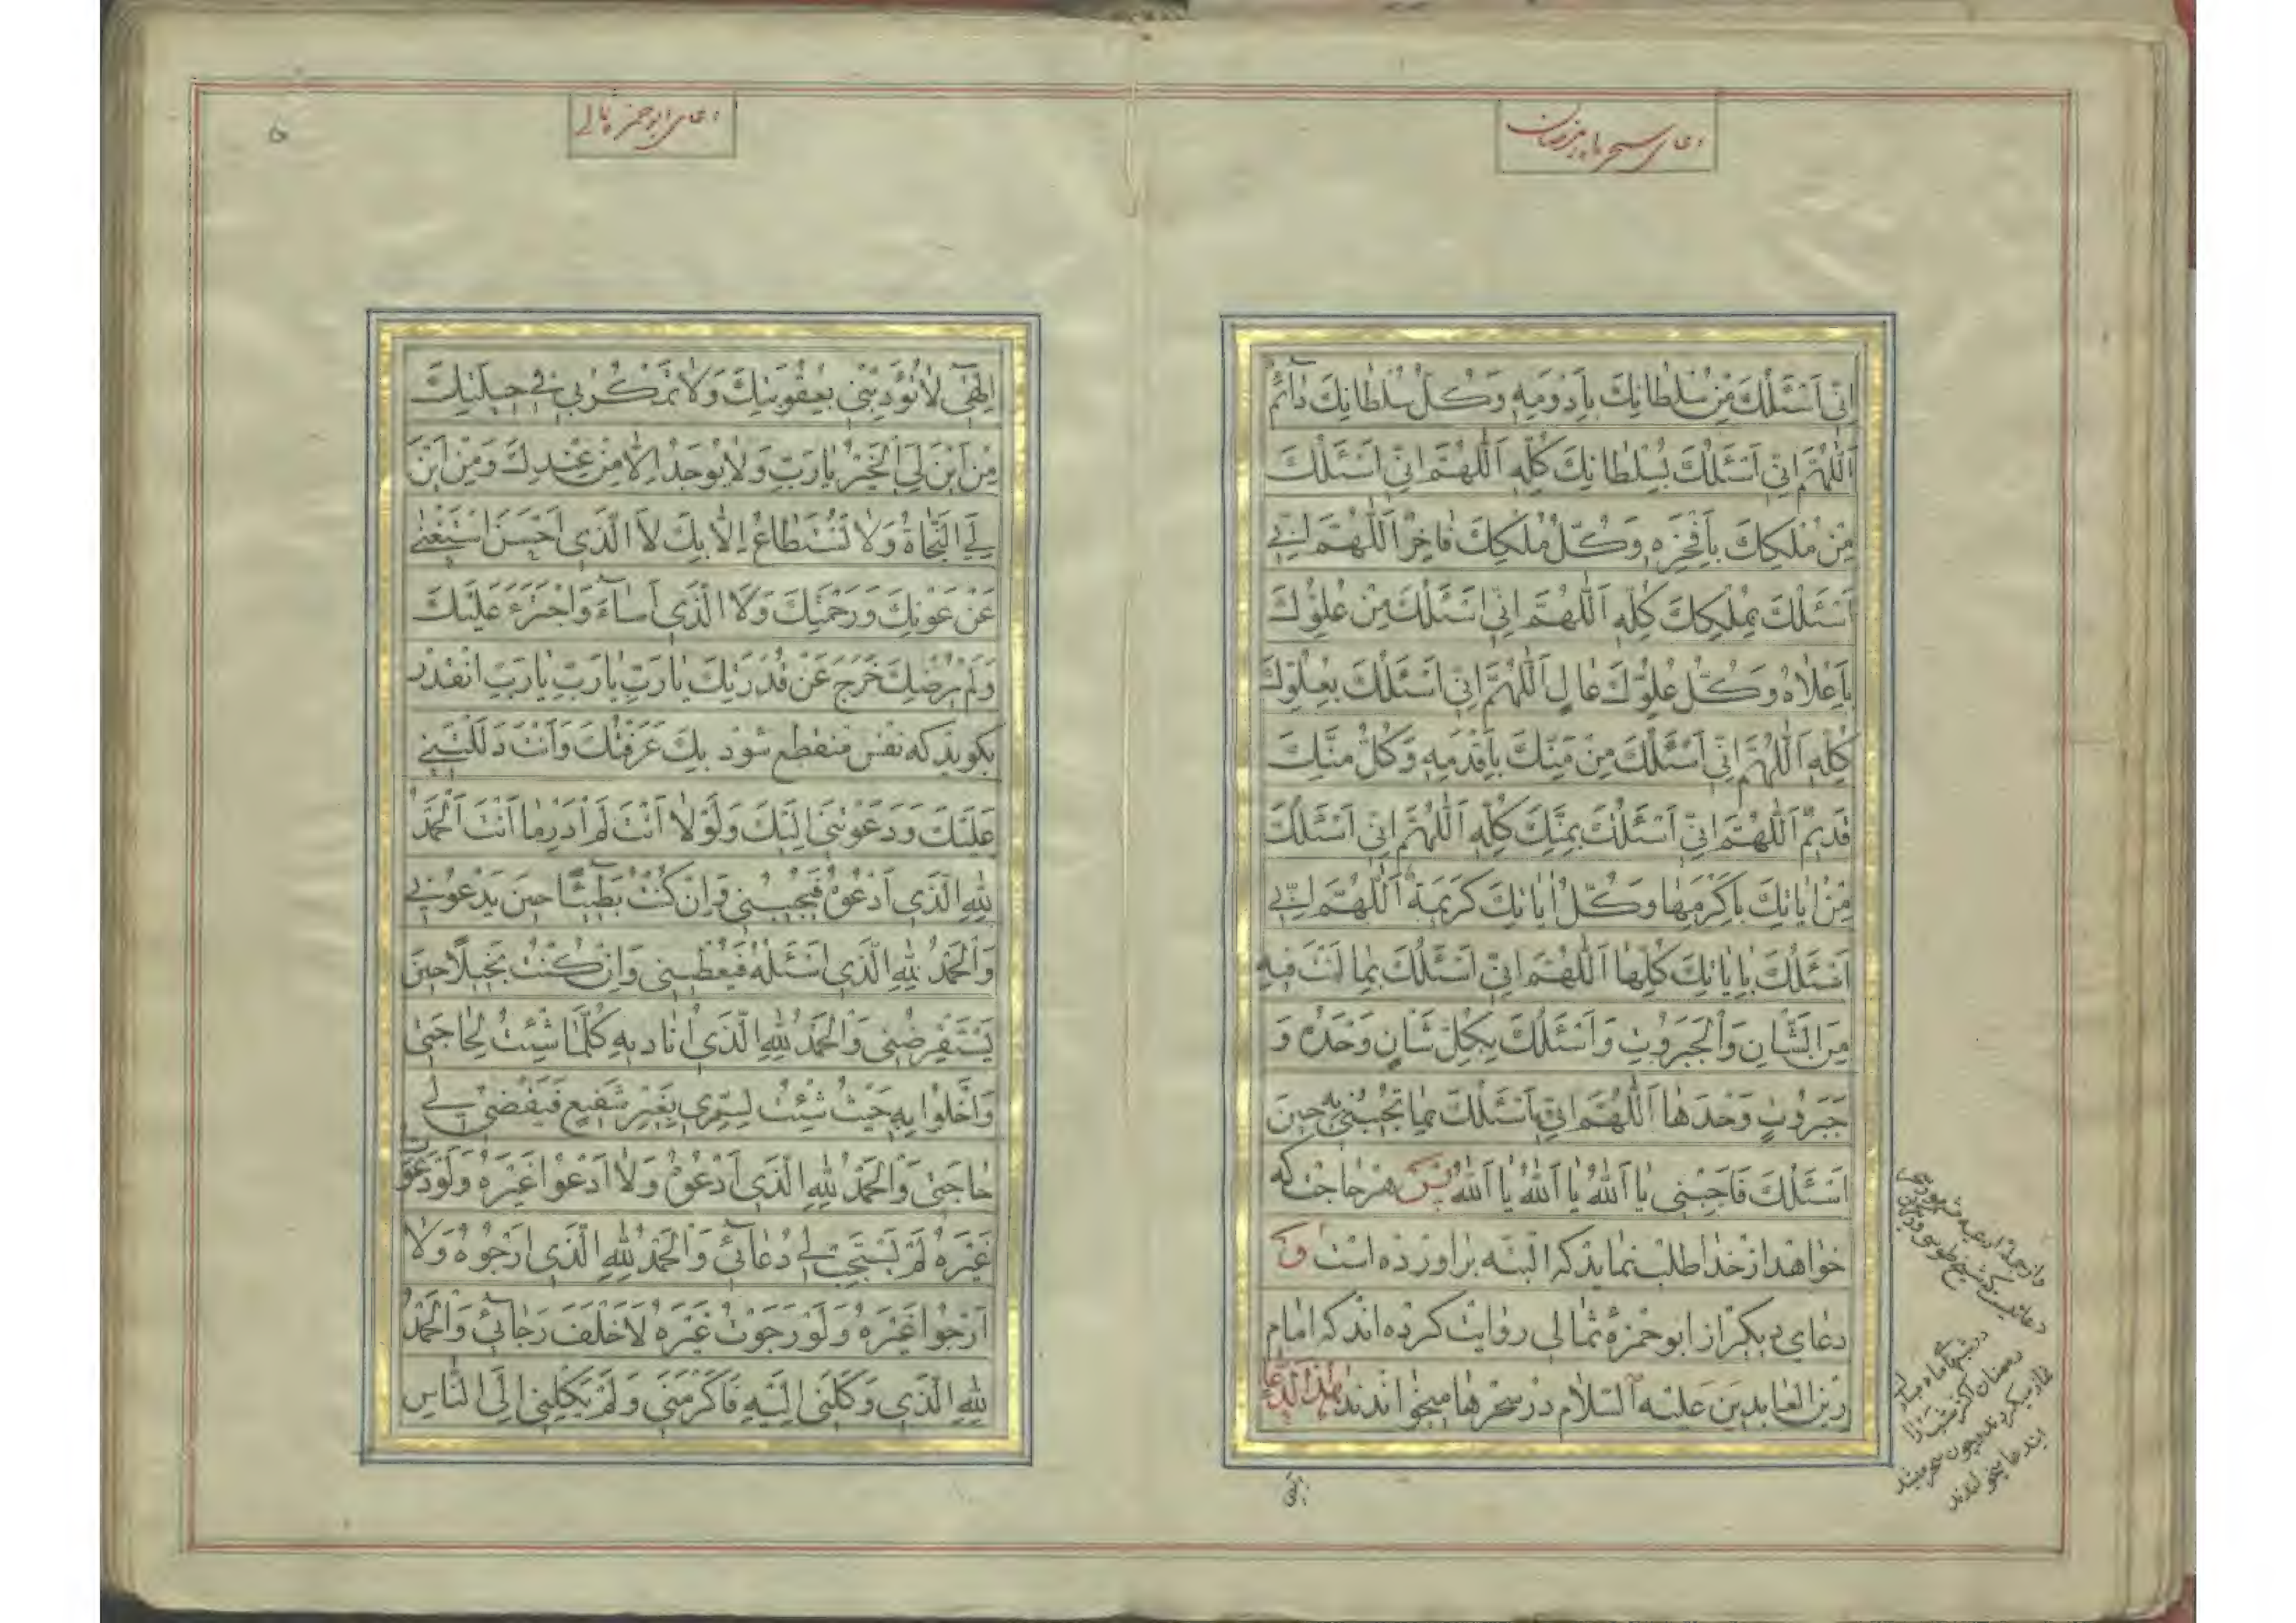 دعای سحر ماه رمضان
اِنّی اَسْئَلُكَ مِنْ سُلْطانِكَ بِاَدْوَمِهِ وَكُلُّ سُلْطانِكَ دآئِمٌ
اَللّهُمَّ اِنّی اَسْئَلُكَ بِسُلْطانِكَ كُلِّهِ اَللّهُمَّ اِنّی اَسْئَلُكَ
مِنْ مُلْكِكَ بِاَفْخَرِهِ وَكُلُّ مُلْكِكَ فاخِرٌ اَللّهُمَّ اِنّی
اَسْئَلُكَ بِمُلْكِكَ كُلِّهِ اَللّهُمَّ اِنّی اَسْئَلُكَ مِنْ عُلُوِّكَ
بِاَعْلاهُ وَكُلُّ عُلُوِّكَ عالٍ اَللّهُمَّ اِنّی اَسْئَلُكَ بِعُلُوِّكَ
كُلِّهِ اَللّهُمَّ اِنّی اَسْئَلُكَ مِنْ مَنِّكَ بِاَقْدَمِهِ وَكُلُّ مَنِّكَ
قَدیمٌ اَللّهُمَّ اِنّی اَسْئَلُكَ بِمَنِّكَ كُلِّهِ اَللّهُمَّ اِنّی اَسْئَلُكَ
مِنْ ایاتِكَ بِاَكْرَمِها وَكُلُّ ایاتِكَ كَریمَةٌ اَللّهُمَّ اِنّی
اَسْئَلُكَ بِایاتِكَ كُلِّها اَللّهُمَّ اِنّی اَسْئَلُكَ بِما اَنْتَ فیهِ
مِنَ الشَّاْنِ وَالْجَبَرُوتِ وَاَسْئَلُكَ بِكُلِّ شَاْنٍ وَحْدَهُ وَ
جَبَرُوتٍ وَحْدَها اَللّهُمَّ اِنّی اَسْئَلُكَ بِما تُجیبُنی بِهِ حینَ
اَسْئَلُكَ فَاَجِبْنی یا اَللّهُ یا اَللّهُ یا اَللّهُ پس هر حاجت که
خواهد از خدا طلب نماید که البته برآورده است و
دعای دیگر از ابوحمزهٔ ثمالی روایت کرده اند که امام
زین العابدین علیه السلام در سحرها میخواندند هذا الدعا
در شبهای ماه مبارک
رمضان اکثر شب را
نماز میکردند و چون سحر میشد
این دعا میخواندند
الهی
دعای ابوحمزه ثمالی
۵
اِلهی لا تُؤَدِّبْنی بِعُقُوبَتِكَ وَلا تَمْكُرْ بی فی حیلَتِكَ
مِنْ اَیْنَ لِیَ الْخَیْرُ یا رَبِّ وَلا یُوجَدُ اِلاّ مِنْ عِنْدِكَ وَمِنْ اَیْنَ
لِیَ النَّجاةُ وَلا تُسْتَطاعُ اِلاّ بِكَ لاَ الَّذی اَحْسَنَ اسْتَغْنی
عَنْ عَوْنِكَ وَرَحْمَتِكَ وَلاَ الَّذی اَسآءَ وَاجْتَرَءَ عَلَیْكَ
وَلَمْ یُرْضِكَ خَرَجَ عَنْ قُدْرَتِكَ یا رَبِّ یا رَبِّ یا رَبِّ انقدر
بگوید که نفس منقطع شود بِكَ عَرَفْتُكَ وَاَنْتَ دَلَلْتَنی
عَلَیْكَ وَدَعَوْتَنی اِلَیْكَ وَلَوْلا اَنْتَ لَمْ اَدْرِ ما اَنْتَ اَلْحَمْدُ
لِلّهِ الَّذی اَدْعُوهُ فَیُجیبُنی وَاِنْ كُنْتُ بَطیئًا حینَ یَدْعُونی
وَالْحَمْدُ لِلّهِ الَّذی اَسْئَلُهُ فَیُعْطینی وَاِنْ كُنْتُ بَخیلاً حینَ
یَسْتَقْرِضُنی وَالْحَمْدُ لِلّهِ الَّذی اُنادیهِ كُلَّما شِئْتُ لِحاجَتی
وَاَخْلُوا بِهِ حَیْثُ شِئْتُ لِسِرّی بِغَیْرِ شَفیعٍ فَیَقْضی لی
حاجَتی وَالْحَمْدُ لِلّهِ الَّذی اَدْعُوهُ وَلا اَدْعُوا غَیْرَهُ وَلَوْ دَعَوْتُ
غَیْرَهُ لَمْ یَسْتَجِبْ لی دُعآئی وَالْحَمْدُ لِلّهِ الَّذی اَرْجُوهُ وَلا
اَرْجُوا غَیْرَهُ وَلَوْ رَجَوْتُ غَیْرَهُ لاَخْلَفَ رَجآئی وَالْحَمْدُ
لِلّهِ الَّذی وَكَلَنی اِلَیْهِ فَاَكْرَمَنی وَلَمْ یَكِلْنی اِلَی النّاسِ